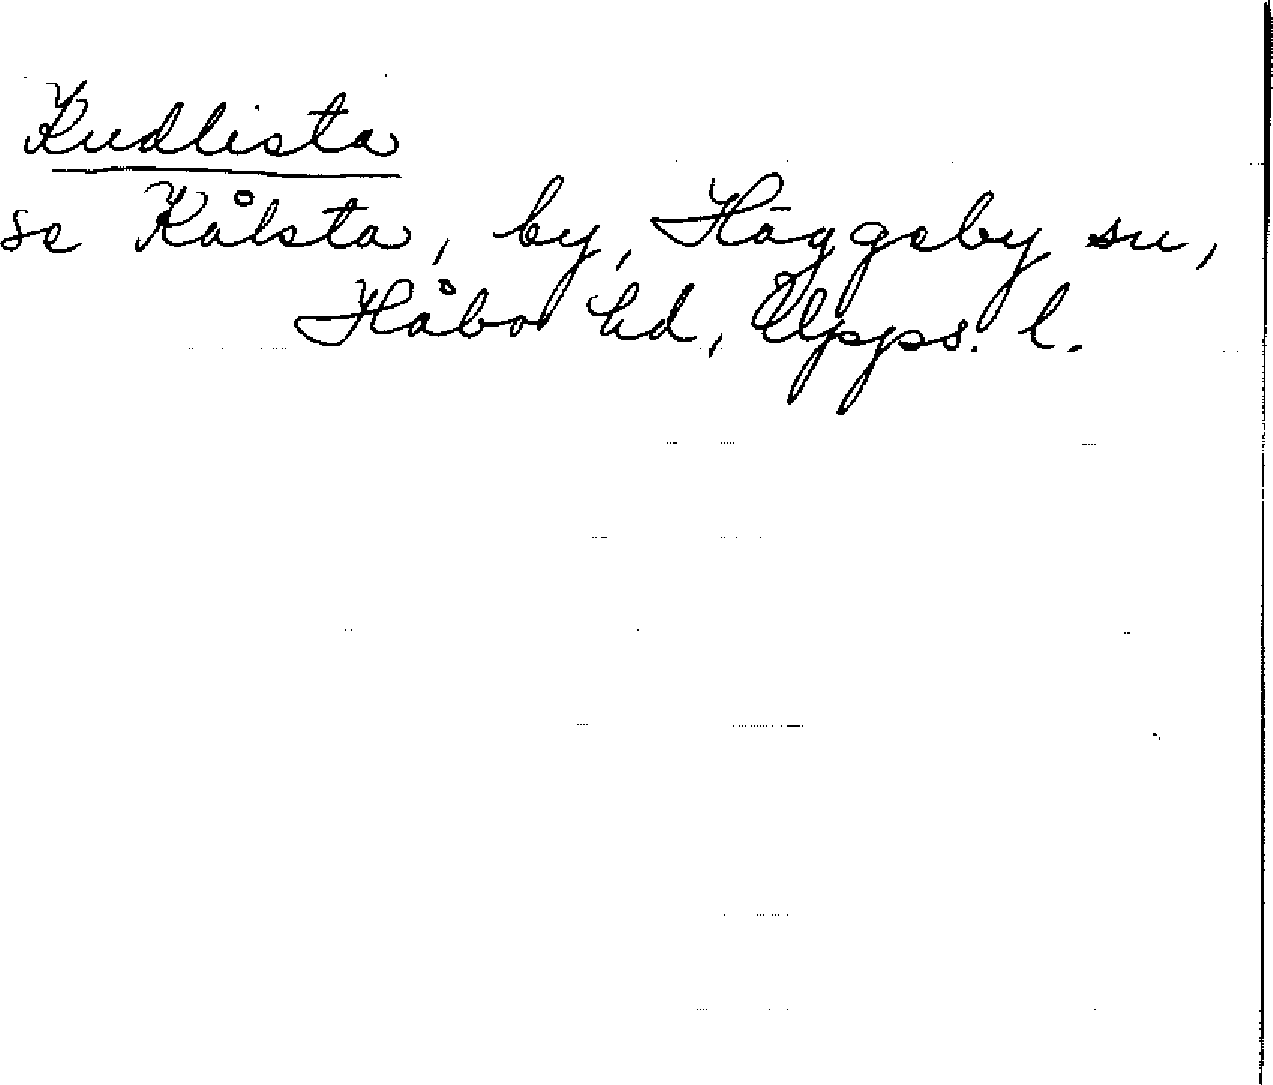 Kudlista
se Kålsta, by, Häggeby sn,
Håbo hd, Upps. l.